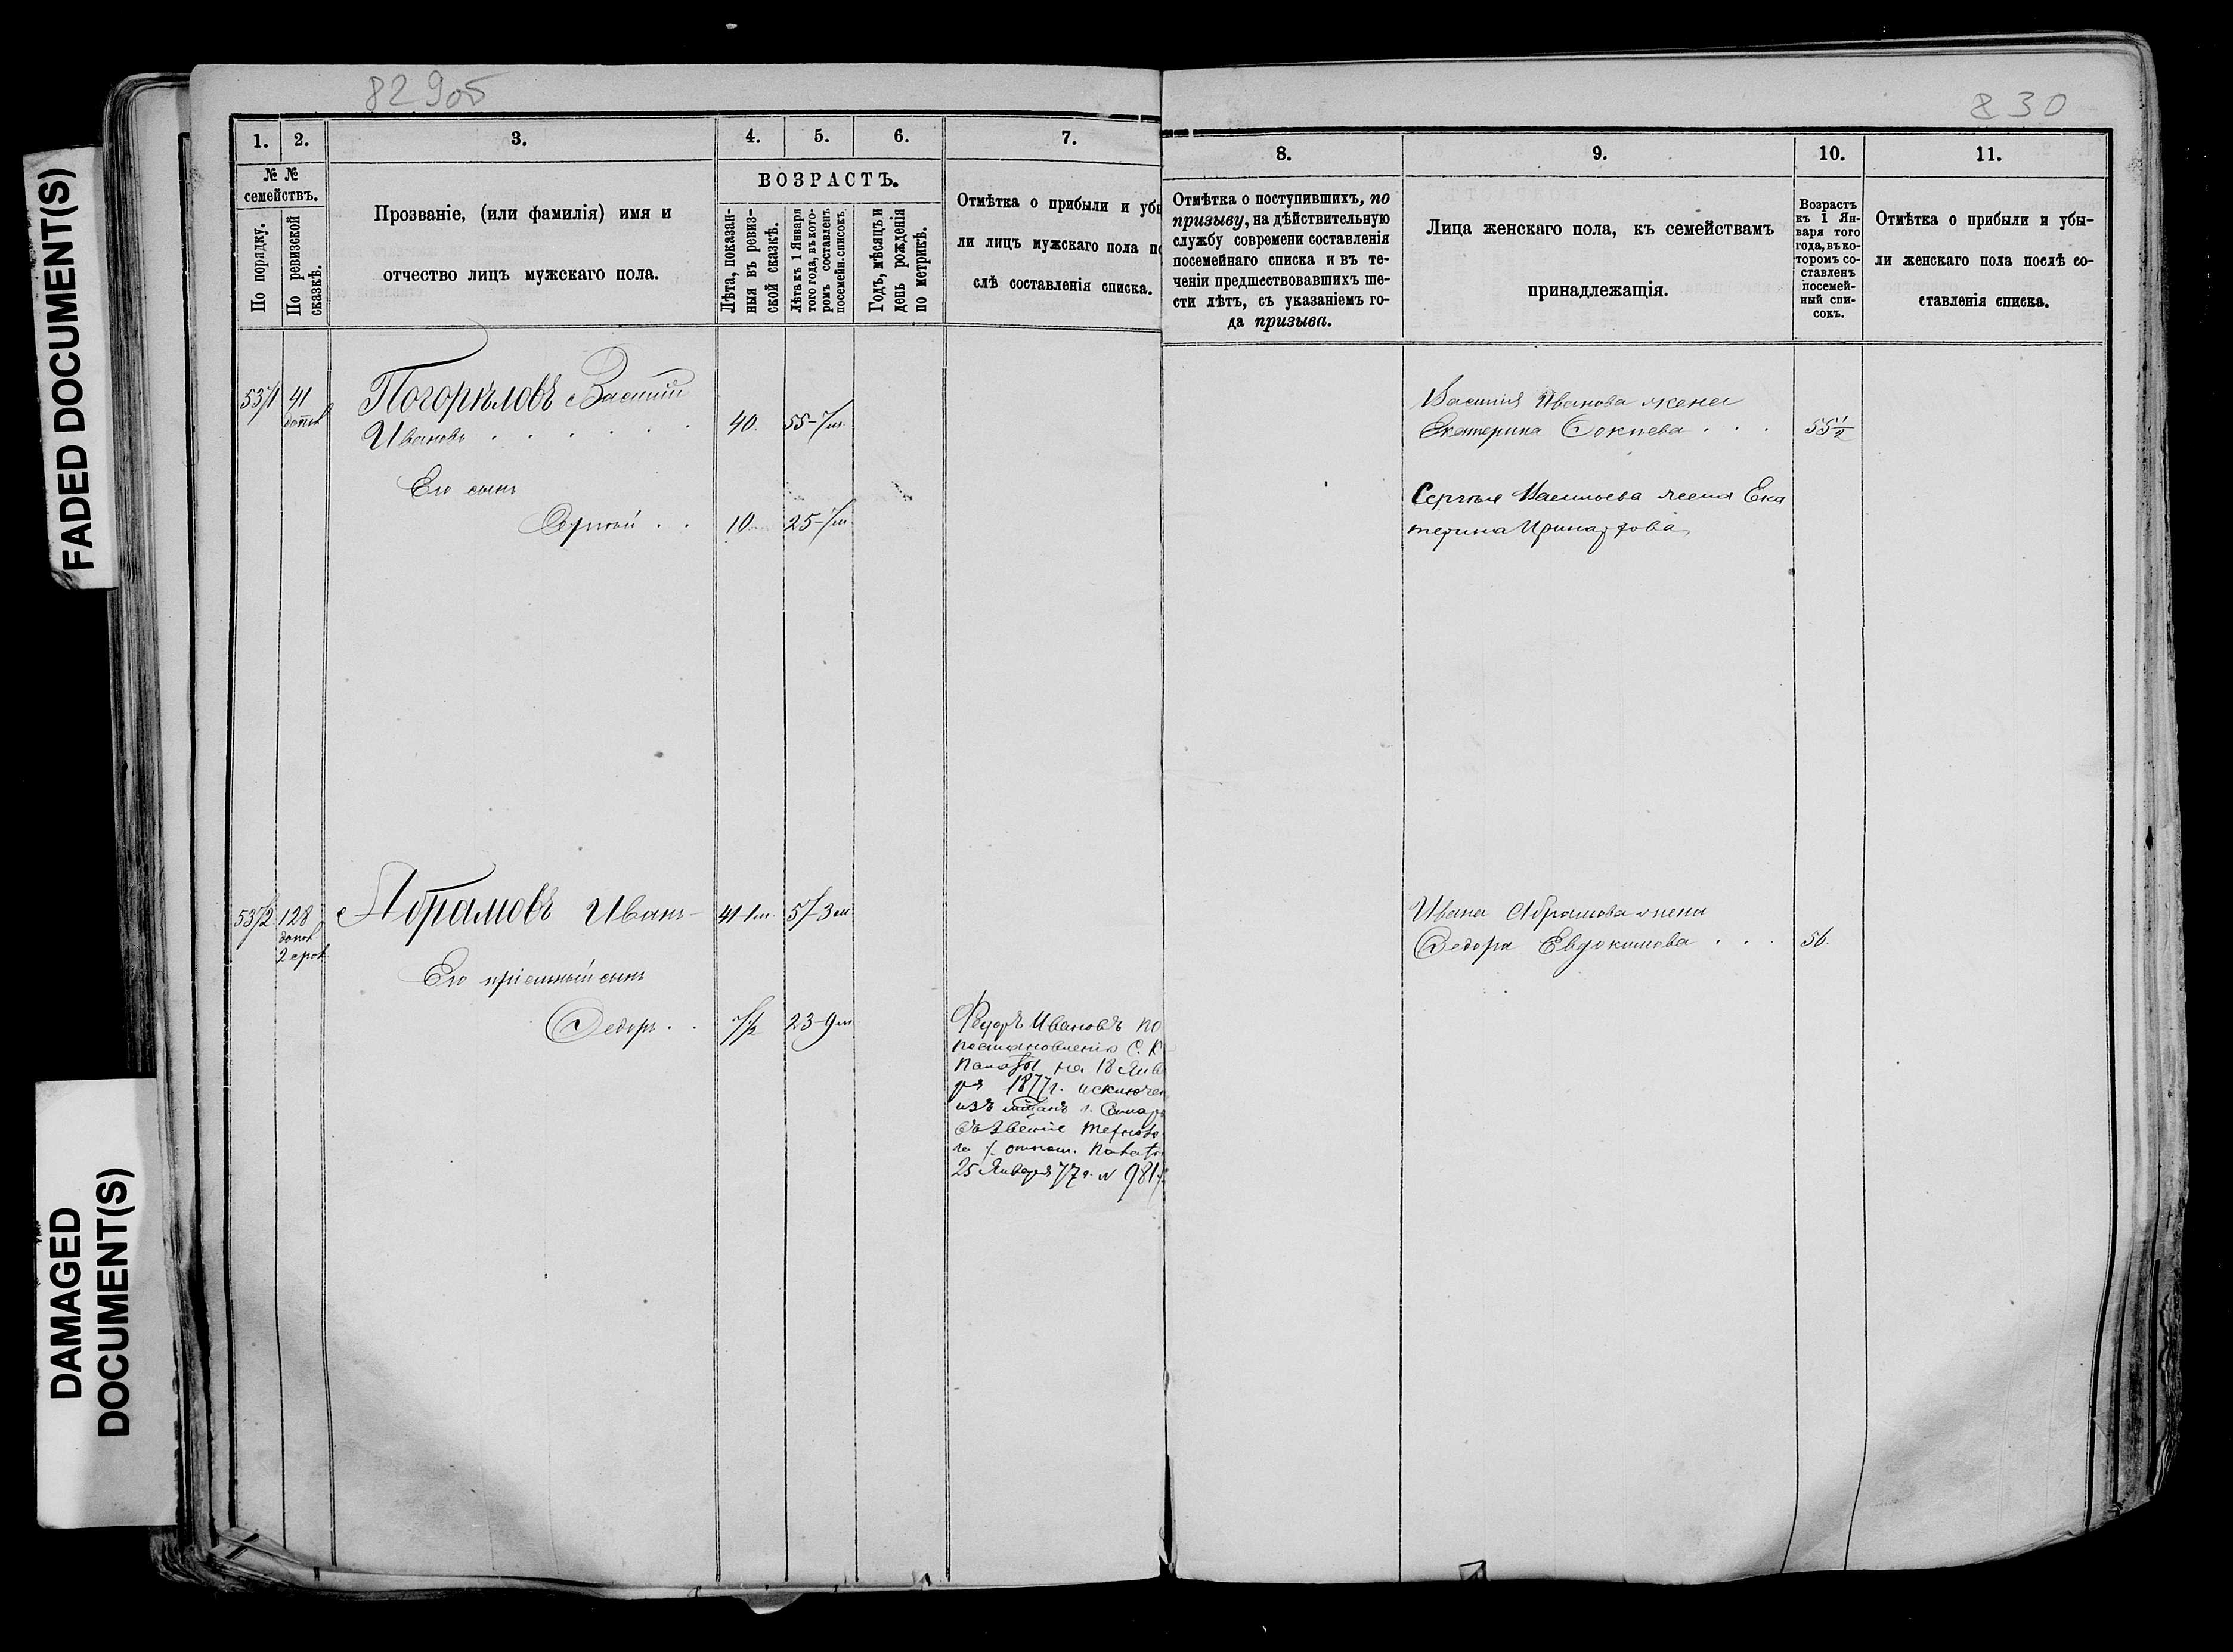 FADED DOCUMENT(S)
DAMAGED
DOCUMENT(S)
829об
1. 2. 3. 4. 5. 6. 7.
№ №
семействъ.
По порядку.
По ревизской
сказкѣ.
Прозваніе, (или фамилія) имя и
отчество лицъ мужскаго пола.
ВОЗРАСТЪ.
Лѣта, показан-
ныя въ ревиз-
ской сказкѣ.
Лѣта къ 1 Января
того года, въ кото-
ромъ составленъ
посемейн. списокъ.
Годъ, мѣсяцъ и
день рожденія
по метрикѣ.
Отмѣтка о прибыли и убы
ли лицъ мужскаго пола по
слѣ составленія списка.
41
Погорѣловъ Василій
Ивановъ . . . . . . 40. 55-7м.
Его сынъ
Сергѣй . . 10. 25-7м.
128
Абрамовъ Иванъ 41-1м. 57-3м
Его пріемный сынъ
Федоръ . . 7½ 23-9м
Федоръ Ивановъ по
постановленію С. К
Палаты на 18 Янва
ря 1877г. исключен
изъ мѣщанъ г. Самар
25 Января 77г. №981
830
8. 9. 10. 11.
Отмѣтка о поступившихъ, по
призыву, на дѣйствительную
службу современи составленія
посемейнаго списка и въ те-
ченіи предшествовавшихъ ше-
сти лѣтъ, съ указаніемъ го-
да призыва.
Лица женскаго пола, къ семействамъ
принадлежащія.
Возрастъ
къ 1 Ян-
варя того
года, въ ко-
торомъ со-
ставленъ
посемей-
ный спи-
сокъ.
Отмѣтка о прибыли и убы-
ли женскаго пола послѣ со-
ставленія списка.
Василія Иванова жена
Екатерина . . . 55½
Сергѣя Васильева жена Ека
терина Иринархова
Ивана Абрамова жена
Федора Евдокимова . . . 56.